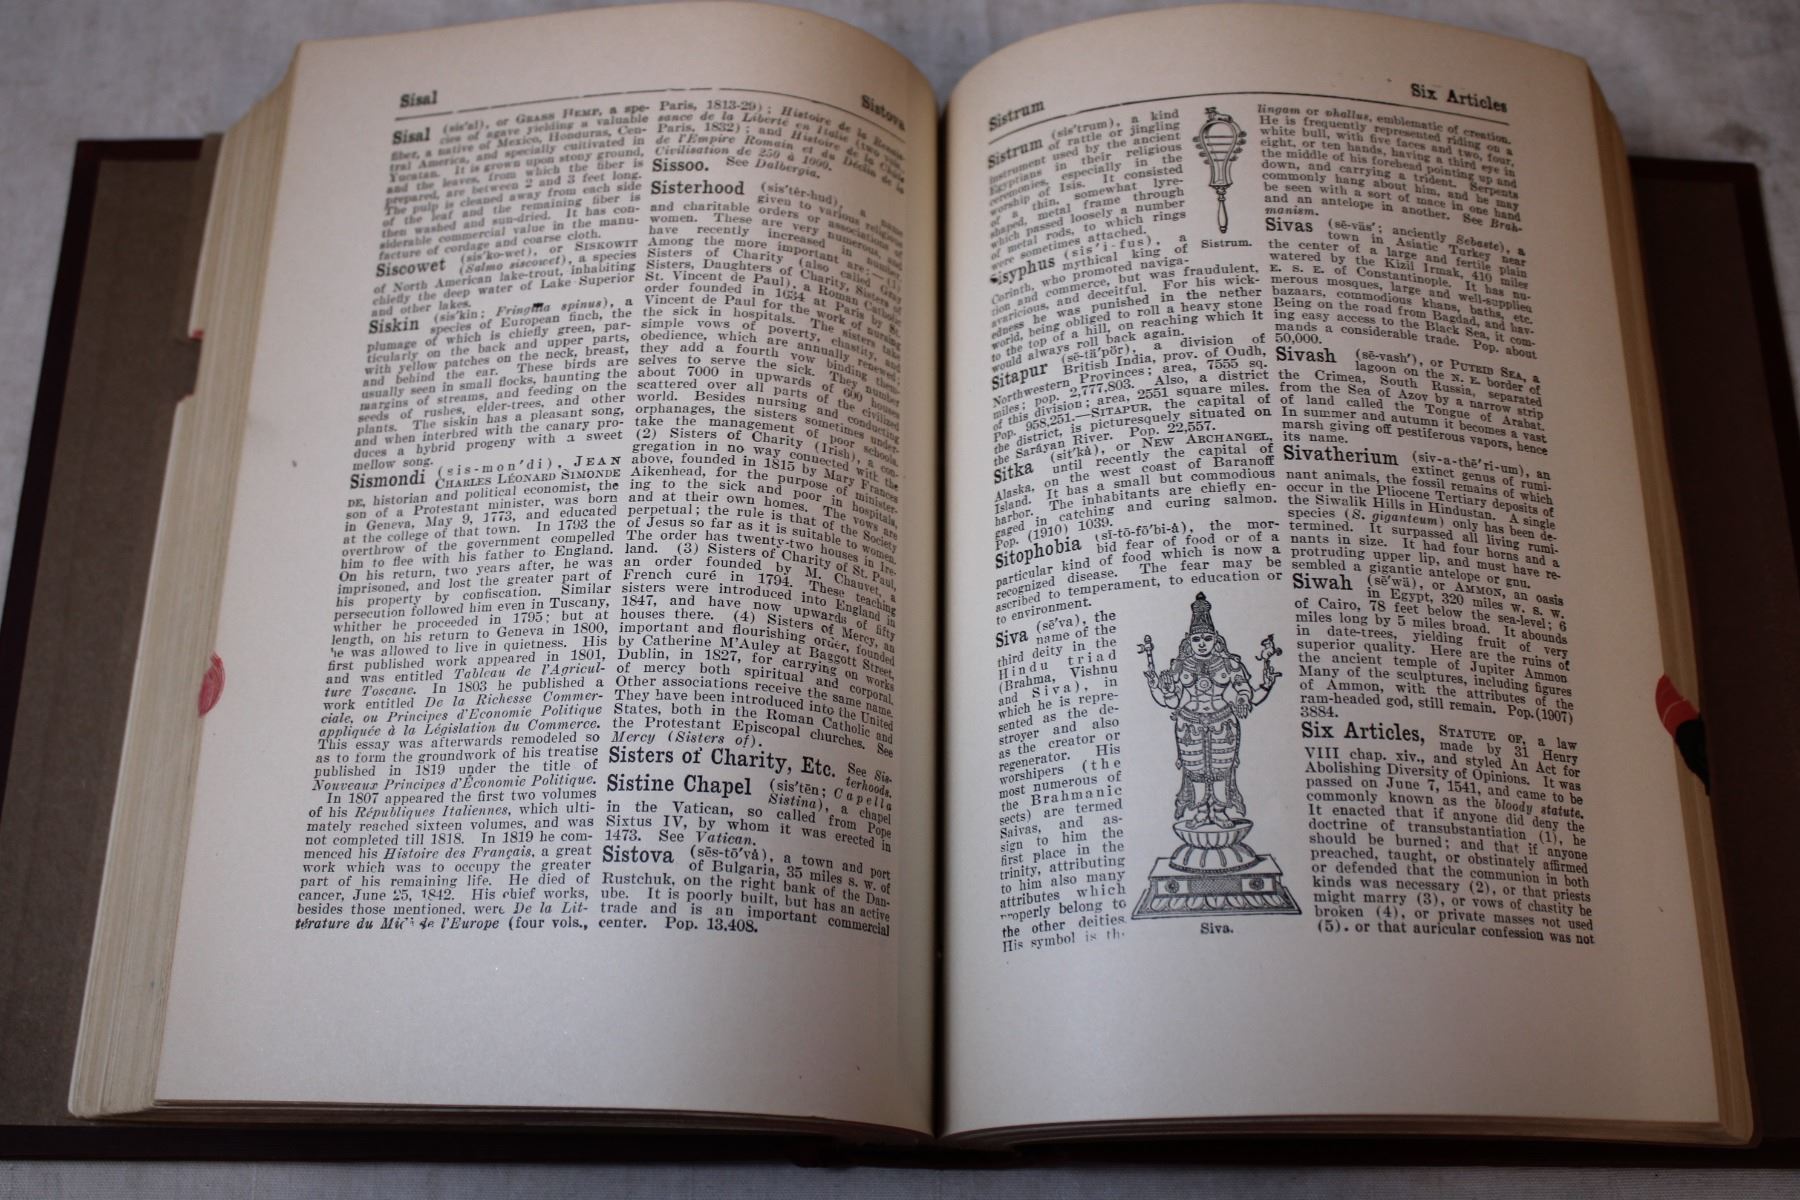 Sisal
Sistova
Sisal (sis'al), or GRASS HEMP, a spe-
cies of agave yielding a valuable
fiber, a native of Mexico, Honduras, Cen-
tral America, and specially cultivated in
Yucatan. It is grown upon stony ground,
and the leaves, from which the fiber is
prepared, are between 2 and 3 feet long.
The pulp is cleaned away from each side
of the leaf and the remaining fiber is
then washed and sun-dried. It has con-
siderable commercial value in the manu-
facture of cordage and coarse cloth.
Siscowet (sis'ko-wet), or SISKOWIT
(Salmo siscowet), a species
of North American lake-trout, inhabiting
chiefly the deep water of Lake Superior
and other lakes.
Siskin (sis'kin; Fringilla spinus), a
species of European finch, the
plumage of which is chiefly green, par-
ticularly on the back and upper parts,
with yellow patches on the neck, breast,
and behind the ear. These birds are
usually seen in small flocks, haunting the
margins of streams, and feeding on the
seeds of rushes, elder-trees, and other
plants. The siskin has a pleasant song,
and when interbred with the canary pro-
duces a hybrid progeny with a sweet
mellow song.
Sismondi (sis-mon'di), JEAN
CHARLES LÉONARD SIMONDE
DE, historian and political economist, the
son of a Protestant minister, was born
in Geneva, May 9, 1773, and educated
at the college of that town. In 1793 the
overthrow of the government compelled
him to flee with his father to England.
On his return, two years after, he was
imprisoned, and lost the greater part of
his property by confiscation. Similar
persecution followed him even in Tuscany,
whither he proceeded in 1795; but at
length, on his return to Geneva in 1800,
he was allowed to live in quietness. His
first published work appeared in 1801,
and was entitled Tableau de l'Agricul-
ture Toscane. In 1803 he published a
work entitled De la Richesse Commer-
ciale, ou Principes d'Economie Politique
appliquée à la Législation du Commerce.
This essay was afterwards remodeled so
as to form the groundwork of his treatise
published in 1819 under the title of
Nouveaux Principes d'Économie Politique.
In 1807 appeared the first two volumes
of his Républiques Italiennes, which ulti-
mately reached sixteen volumes, and was
not completed till 1818. In 1819 he com-
menced his Histoire des Français, a great
work which was to occupy the greater
part of his remaining life. He died of
cancer, June 25, 1842. His chief works,
besides those mentioned, were De la Lit-
térature du Midi de l'Europe (four vols.,
Paris, 1813-29); Histoire de la Renais-
sance de la Liberté en Italie (two vols.,
Paris, 1832); and Histoire de la Chute
de l'Empire Romain et du Déclin de la
Civilisation de 250 à 1000.
Sissoo. See Dalbergia.
Sisterhood (sis'tér-hud), a name
given to various religious
and charitable orders or associations of
women. These are very numerous, and
have recently increased in number.
Among the more important are:— (1)
Sisters of Charity (also called Gray
Sisters, Daughters of Charity, Sisters of
St. Vincent de Paul), a Roman Catholic
order founded in 1634 at Paris by St.
Vincent de Paul for the work of nursing
the sick in hospitals. The sisters take
simple vows of poverty, chastity, and
obedience, which are annually renewed;
they add a fourth vow binding them-
selves to serve the sick. They number
about 7000 in upwards of 600 houses
scattered over all parts of the civilized
world. Besides nursing and conducting
orphanages, the sisters sometimes under-
take the management of poor schools.
(2) Sisters of Charity (Irish), a con-
gregation in no way connected with the
above, founded in 1815 by Mary Frances
Aikenhead, for the purpose of minister-
ing to the sick and poor in hospitals,
and at their own homes. The vows are
perpetual; the rule is that of the Society
of Jesus so far as it is suitable to women.
The order has twenty-two houses in Ire-
land. (3) Sisters of Charity of St. Paul,
an order founded by M. Chauvet, a
French curé in 1794. These teaching
sisters were introduced into England in
1847, and have now upwards of fifty
houses there. (4) Sisters of Mercy, an
important and flourishing order, founded
by Catherine M'Auley at Baggott Street,
Dublin, in 1827, for carrying on works
of mercy both spiritual and corporal.
Other associations receive the same name.
They have been introduced into the United
States, both in the Roman Catholic and
the Protestant Episcopal churches. See
Mercy (Sisters of).
Sisters of Charity, Etc. See Sis-
terhoods.
Sistine Chapel (sis'tēn; Capella
Sistina), a chapel
in the Vatican, so called from Pope
Sixtus IV, by whom it was erected in
1473. See Vatican.
Sistova (sēs-tō'vå), a town and port
of Bulgaria, 35 miles s. w. of
Rustchuk, on the right bank of the Dan-
ube. It is poorly built, but has an active
trade and is an important commercial
center. Pop. 13,408.
Sistrum
Six Articles
Sistrum (sis'trum), a kind
of rattle or jingling
instrument used by the ancient
Egyptians in their religious
ceremonies, especially in the
worship of Isis. It consisted
of a thin, somewhat lyre-
shaped, metal frame through
which passed loosely a number
of metal rods, to which rings
were sometimes attached.
Sistrum.
Sisyphus (sis'i-fus), a
mythical king of
Corinth, who promoted naviga-
tion and commerce, but was fraudulent,
avaricious, and deceitful. For his wick-
edness he was punished in the nether
world, being obliged to roll a heavy stone
to the top of a hill, on reaching which it
would always roll back again.
Sitapur (sē-tä'pör), a division of
British India, prov. of Oudh,
Northwestern Provinces; area, 7555 sq.
miles; pop. 2,777,803. Also, a district
of this division; area, 2551 square miles.
Pop. 958,251.—SITAPUR, the capital of
the district, is picturesquely situated on
the Saráyan River. Pop. 22,557.
Sitka (sit'kå), or NEW ARCHANGEL,
until recently the capital of
Alaska, on the west coast of Baranoff
Island. It has a small but commodious
harbor. The inhabitants are chiefly en-
gaged in catching and curing salmon.
Pop. (1910) 1039.
Sitophobia (sī-tō-fō'bi-å), the mor-
bid fear of food or of a
particular kind of food which is now a
recognized disease. The fear may be
ascribed to temperament, to education or
to environment.
Siva (sē'va), the
name of the
third deity in the
Hindu triad
(Brahma, Vishnu
and Siva), in
which he is repre-
sented as the de-
stroyer and also
as the creator or
regenerator. His
worshipers (the
most numerous of
the Brahmanic
sects) are termed
Saivas, and as-
sign to him the
first place in the
trinity, attributing
to him also many
attributes which
properly belong to
the other deities.
His symbol is the
Siva.
lingam or phallus, emblematic of creation.
He is frequently represented riding on a
white bull, with five faces and two, four,
eight, or ten hands, having a third eye in
the middle of his forehead pointing up and
down, and carrying a trident. Serpents
commonly hang about him, and he may
be seen with a sort of mace in one hand
and an antelope in another. See Brah-
manism.
Sivas (sē-väs'; anciently Sebaste), a
town in Asiatic Turkey near
the center of a large and fertile plain
watered by the Kizil Irmak, 410 miles
E. S. E. of Constantinople. It has nu-
merous mosques, large and well-supplied
bazaars, commodious khans, baths, etc.
Being on the road from Bagdad, and hav-
ing easy access to the Black Sea, it com-
mands a considerable trade. Pop. about
50,000.
Sivash (sē-vash'), or PUTRID SEA, a
lagoon on the N. E. border of
the Crimea, South Russia, separated
from the Sea of Azov by a narrow strip
of land called the Tongue of Arabat.
In summer and autumn it becomes a vast
marsh giving off pestiferous vapors, hence
its name.
Sivatherium (siv-a-thē'ri-um), an
extinct genus of rumi-
nant animals, the fossil remains of which
occur in the Pliocene Tertiary deposits of
the Siwalik Hills in Hindustan. A single
species (S. giganteum) only has been de-
termined. It surpassed all living rumi-
nants in size. It had four horns and a
protruding upper lip, and must have re-
sembled a gigantic antelope or gnu.
Siwah (sē'wä), or AMMON, an oasis
in Egypt, 320 miles w. s. w.
of Cairo, 78 feet below the sea-level; 6
miles long by 5 miles broad. It abounds
in date-trees, yielding fruit of very
superior quality. Here are the ruins of
the ancient temple of Jupiter Ammon
Many of the sculptures, including figures
of Ammon, with the attributes of the
ram-headed god, still remain. Pop.(1907)
3884.
Six Articles, STATUTE OF, a law
made by 31 Henry
VIII chap. xiv., and styled An Act for
Abolishing Diversity of Opinions. It was
passed on June 7, 1541, and came to be
commonly known as the bloody statute.
It enacted that if anyone did deny the
doctrine of transubstantiation (1), he
should be burned; and that if anyone
preached, taught, or obstinately affirmed
or defended that the communion in both
kinds was necessary (2), or that priests
might marry (3), or vows of chastity be
broken (4), or private masses not used
(5). or that auricular confession was not